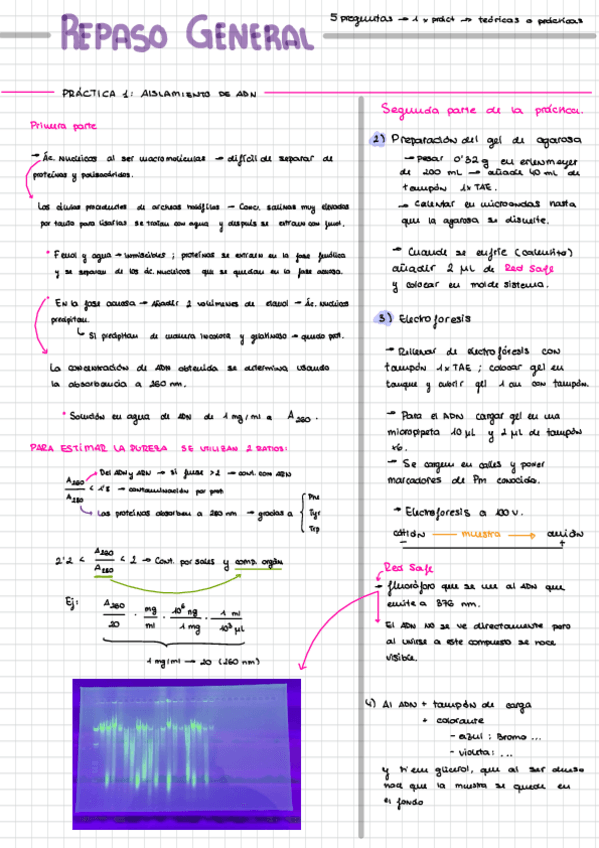 REPASO GENERAL
5 preguntas → 1 x práct → teóricas o prácticas
PRÁCTICA 1: AISLAMIENTO DE ADN
Primera parte
→ Ác. Nucleicos al ser macromoléculas → difícil de separar de
proteínas y polisacáridos.
Las células procedentes de arqueas halófilas → Conc. salinas muy elevadas
por tanto para lisarlas se tratan con agua y después se extraen con fenol.
* Fenol y agua → inmiscibles ; proteínas se extraen en la fase fenólica
y se separan de los ác. nucleicos que se quedan en la fase acuosa.
* En la fase acuosa → Añadir 2 volúmenes de etanol → Ác. Nucleicos
precipitan.
↳ Si precipitan de manera incolora y gelatinoso → quedo prot.
La concentración de ADN obtenida se determina usando
la absorbancia a 260 nm.
* Solución en agua de ADN de 1 mg/ml a A260.
PARA ESTIMAR LA PUREZA SE UTILIZAN 2 RATIOS:
Del ADN y ARN → si fuese >2 → cont. con ARN
A260 / A280 < 1'8 → contaminación por prot.
Las proteínas absorben a 280 nm → gracias a { Phe
Tyr
Trp
2'2 < A260 / A230 < 2 → Cont. por sales y comp. orgán
Ej: A260 / 20 · mg / ml · 10⁶ ng / 1 mg · 1 ml / 10³ µL
1 mg/ml → 20 (260 nm)
Segunda parte de la práctica.
2) Preparación del gel de agarosa
→ pesar 0'32 g en erlenmeyer
de 200 mL → añade 40 mL de
tampón 1x TAE.
→ Calentar en microondas hasta
que la agarosa se disuelve.
→ Cuando se enfríe (calentito)
añadir 2 µL de Red Safe
y colocar en molde sistema.
3) Electroforesis
→ Rellenar de electroforésis con
tampón 1x TAE ; colocar gel en
tanque y cubrir gel 1 cm con tampón.
→ Para el ADN cargar gel en una
micropipeta 10 µL y 2 µL de tampón
x6.
→ Se cargan en calles y poner
marcadores de Pm conocido.
→ Electroforesis a 100 v.
catión — muestra → anión
– +
Red Safe
→ fluoróforo que se une al ADN que
emite a 376 nm.
El ADN no se ve directamente pero
al unirse a este compuesto se hace
visible.
4) Al ADN + tampón de carga
+ colorante
- azul : Bromo ...
- violeta: ...
y tiene glicerol, que al ser denso
hace que la muestra se quede en
el fondo